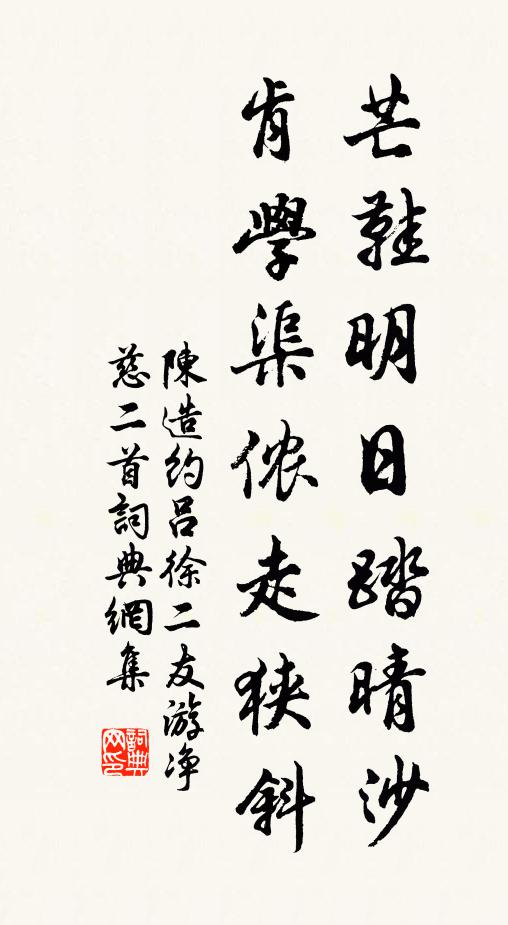 芒鞋明日踏晴沙
肯學渠侬走狹斜
陳造約吕徐二友游净
慈二首詞典網集
詞典网印